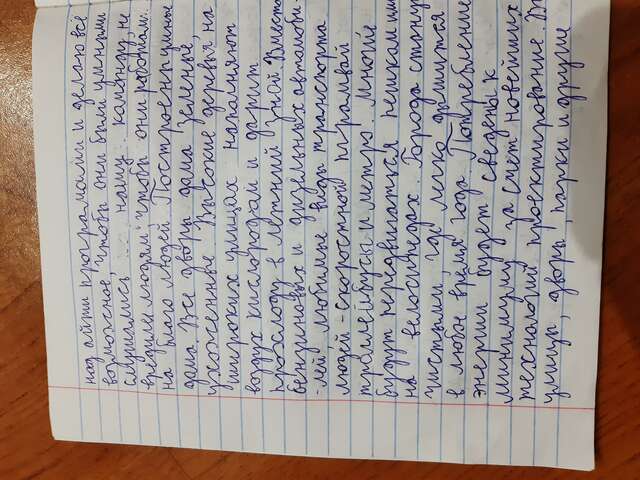 над айти программами и делаю всё
возможное, чтобы они были умными
слушались нашу команду, не
вредили людям, чтобы они работали
на благо людей. Построены
дома. Все дворы дома зеленые,
ухоженные. Высокие деревья на
широких улицах наполняют
воздух кислородом и дарят
прохладу в летний зной. Вместо
бензиновых и дизельных автомоби-
-лей любимые виды транспорта
людей - скоростной трамвай
троллейбусы и метро. Многие
будут передвигаться пешком или
на велосипедах. Города станут
чистыми, где легко дышится
в любое время года. Потребление
энергии будет сведены к
минимуму за счет новейших
технологий проектирование.
улицы, дворы, парки и другие